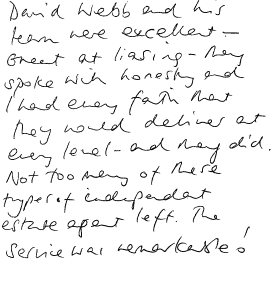 David Webb and his
team were excellent –
Great at liasing – they
spoke with honesty and
I had every faith that
they would deliver at
every level – and they did.
Not too many of these
types of independent
estate agent left. The
service was remarkable!